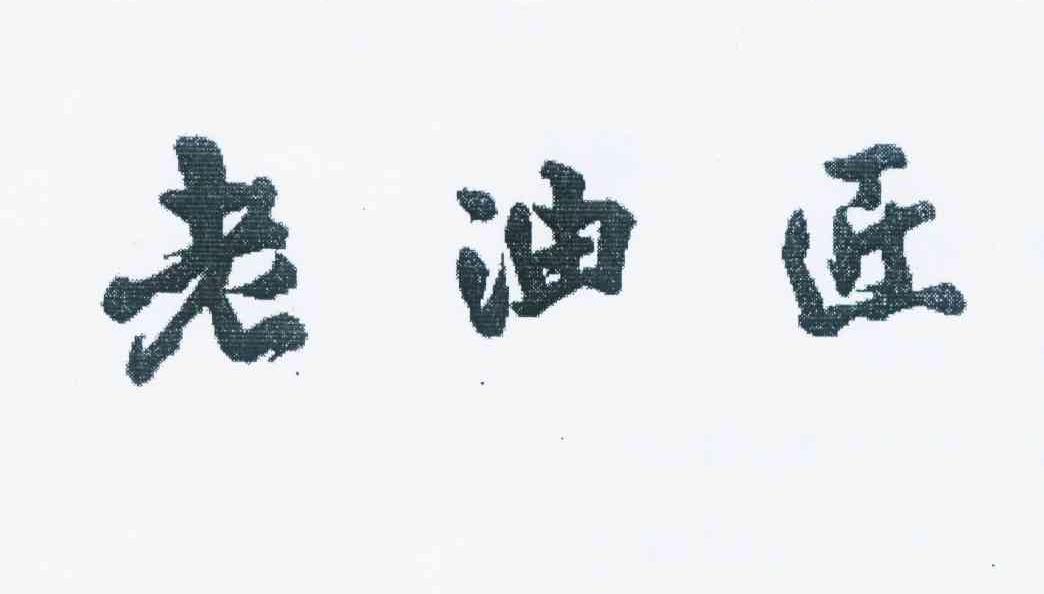 老油匠